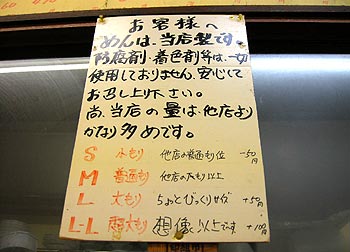 お客様へ
めんは、当店製です。
防腐剤・着色剤等は、一切
使用しておりません、安心して
お召し上り下さい。
尚、当店の量は、他店より
かなり多めです。
S 小もり 他店の普通もり位 -50円
M 普通もり 他店の大もり以上
L 大もり ちょっとびっくりサイズ +50円
L-L 超大もり 想像以上です +100円